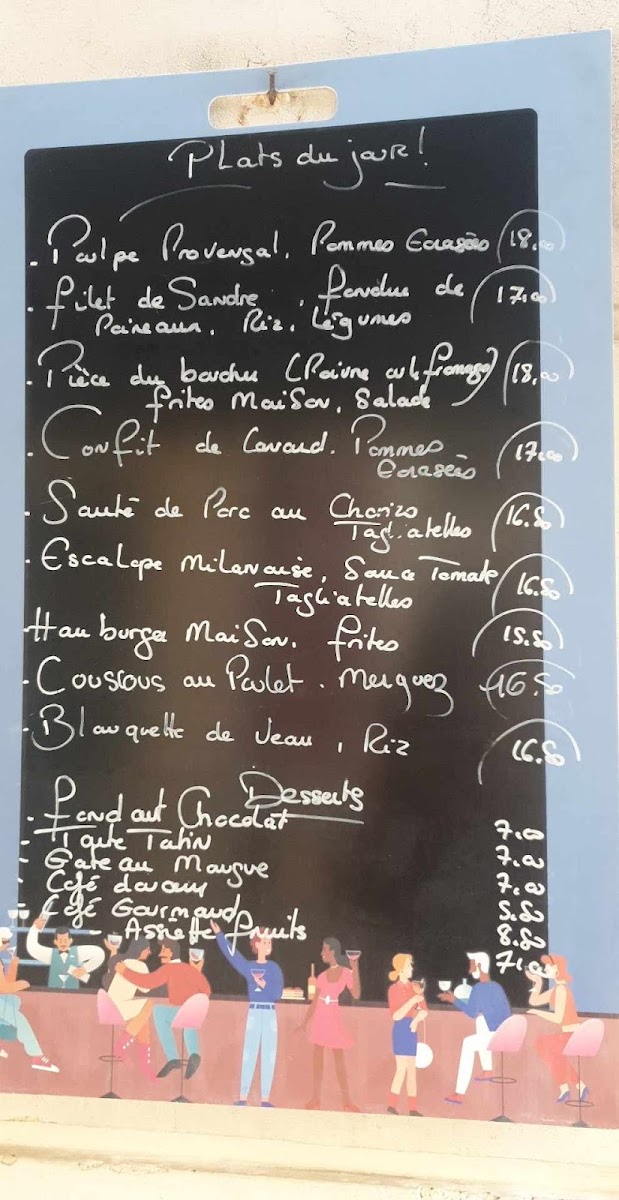 Plats du jour!
- Poulpe Provençal, Pommes Ecrasées 18.00
- filet de Sandre, fondue de 17.00
Poireaux, Riz, Légumes
- Pièce du boucher (Poivre ou fromage) 18.00
frites Maison, Salade
- Confit de Canard. Pommes 17.00
Ecrasées
- Sauté de Porc au Chorizo 16.50
Tagliatelles
- Escalope Milanaise, Sauce Tomate 16.50
Tagliatelles
- Hamburger Maison, frites 15.50
- Couscous au Poulet. Merguez 16.50
- Blanquette de Veau, Riz 16.50
Desserts
- fondant Chocolat 7.00
- Tarte Tatin 7.00
- Gateau Mangue 7.00
- Café 5.50
- Café Gourmand 8.50
- Assiette fruits 7.00